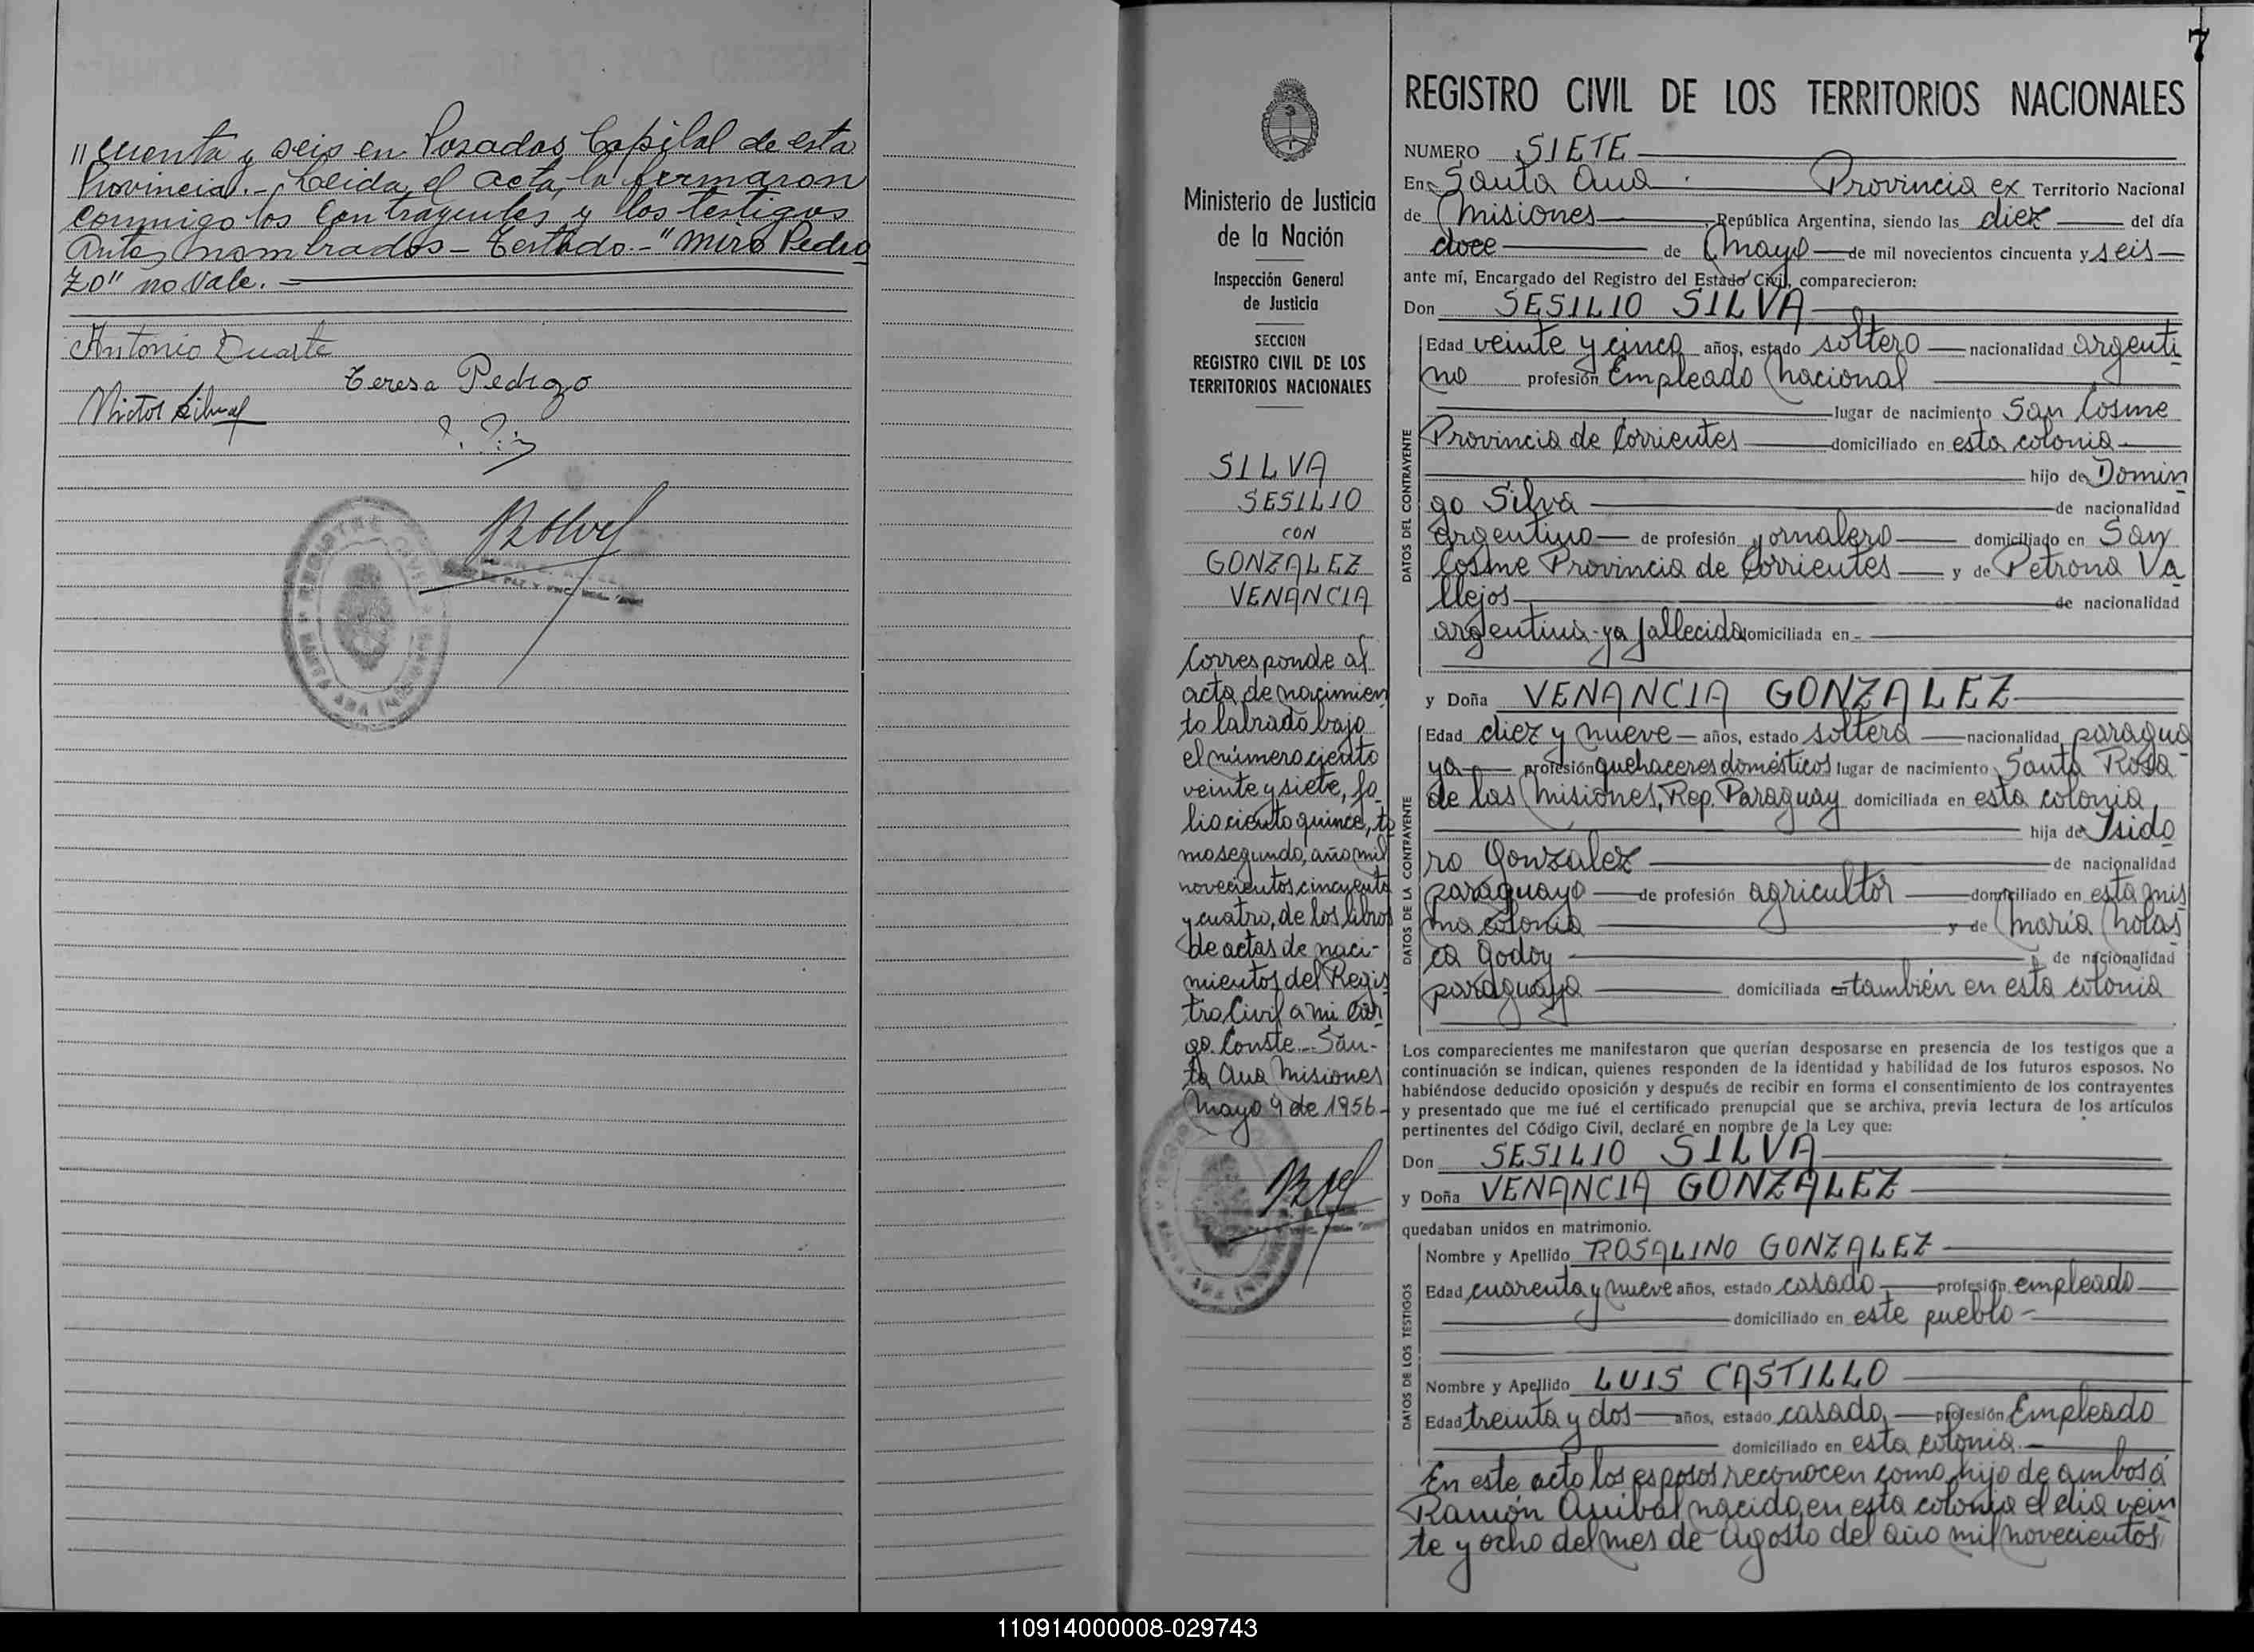 "cuenta y seis en Posadas Capital de esta
Provincia.- Leida, el acta, la firmaron
conmigo los Contrayentes y los testigos
antes nombrados - Testado.- "Miro Pedro
zo" no vale. -
Antonio Duarte
Teresa Pedrozo
Victor
Ministerio de Justicia
de la Nación
Inspección General
de Justicia
SECCION
REGISTRO CIVIL DE LOS
TERRITORIOS NACIONALES
SILVA
SESILIO
CON
GONZALEZ
VENANCIA
Corresponde al
acta de nacimien
to labrado bajo
el número ciento
veinte y siete, fo_
lio ciento quince, to
mo segundo, año mil
novecientos cincuenta
y cuatro, de los libros
de actas de naci-
mientos del Regis
tro Civil a mi car
go. Conste.- San-
ta Ana Misiones
Mayo 9 de 1956-
7
REGISTRO CIVIL DE LOS TERRITORIOS NACIONALES
NUMERO SIETE
En Santa Ana Provincia ex Territorio Nacional
de Misiones, República Argentina, siendo las diez del día
doce de Mayo de mil novecientos cincuenta y seis
ante mí, Encargado del Registro del Estado Civil, comparecieron:
Don SESILIO SILVA
DATOS DEL CONTRAYENTE
Edad veinte y cinco años, estado soltero nacionalidad argenti
no profesión Empleado Nacional
lugar de nacimiento San Cosme
Provincia de Corrientes domiciliado en esta colonia
hijo de Domin
go Silva de nacionalidad
argentino de profesión jornalero domiciliado en San
Cosme Provincia de Corrientes y de Petrona Va
llejos de nacionalidad
argentina-ya fallecida domiciliada en
y Doña VENANCIA GONZALEZ
DATOS DE LA CONTRAYENTE
Edad diez y nueve años, estado soltera nacionalidad paragua
ya profesión quehaceres domésticos lugar de nacimiento Santa Rosa
de las Misiones, Rep. Paraguay domiciliada en esta colonia
hija de Isido
ro Gonzalez de nacionalidad
paraguayo de profesión agricultor domiciliado en esta mis
ma colonia y de María Nolas
ca Godoy de nacionalidad
paraguaya domiciliada en también en esta colonia
Los comparecientes me manifestaron que querían desposarse en presencia de los testigos que a
continuación se indican, quienes responden de la identidad y habilidad de los futuros esposos. No
habiéndose deducido oposición y después de recibir en forma el consentimiento de los contrayentes
y presentado que me fué el certificado prenupcial que se archiva, previa lectura de los artículos
pertinentes del Código Civil, declaré en nombre de la Ley que:
Don SESILIO SILVA
y Doña VENANCIA GONZALEZ
quedaban unidos en matrimonio.
DATOS DE LOS TESTIGOS
Nombre y Apellido ROSALINO GONZALEZ
Edad cuarenta y nueve años, estado casado profesión empleado
domiciliado en este pueblo
Nombre y Apellido LUIS CASTILLO
Edad treinta y dos años, estado casado profesión Empleado
domiciliado en esta colonia.
En este acto los esposos reconocen como hijo de ambos á
Ramón Anibal nacido en esta colonia el dia vein
te y ocho del mes de Agosto del año mil novecientos
110914000008-029743